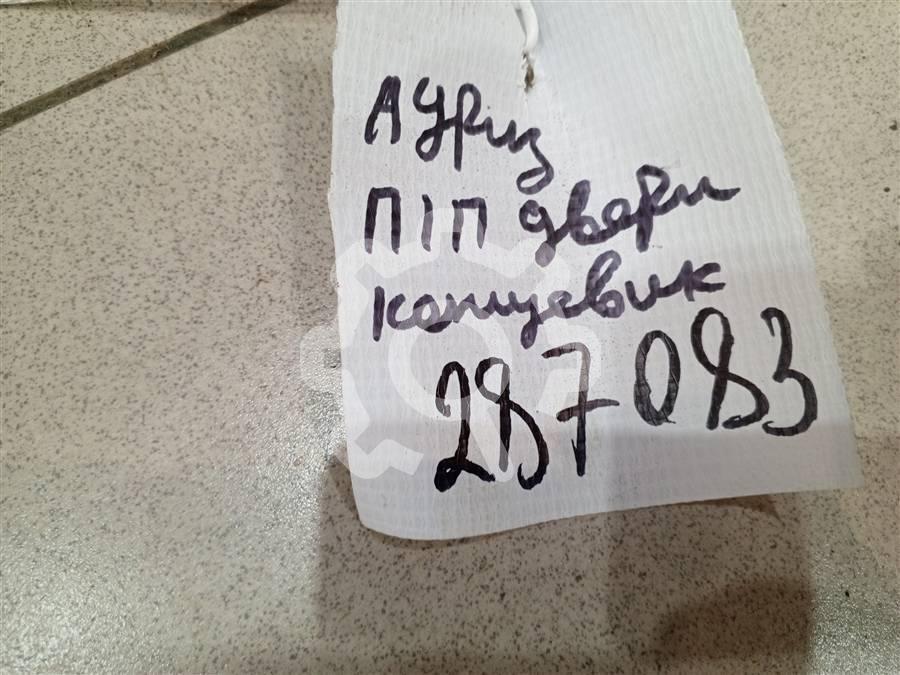 Ауриз
П/П двери
концевик
287083